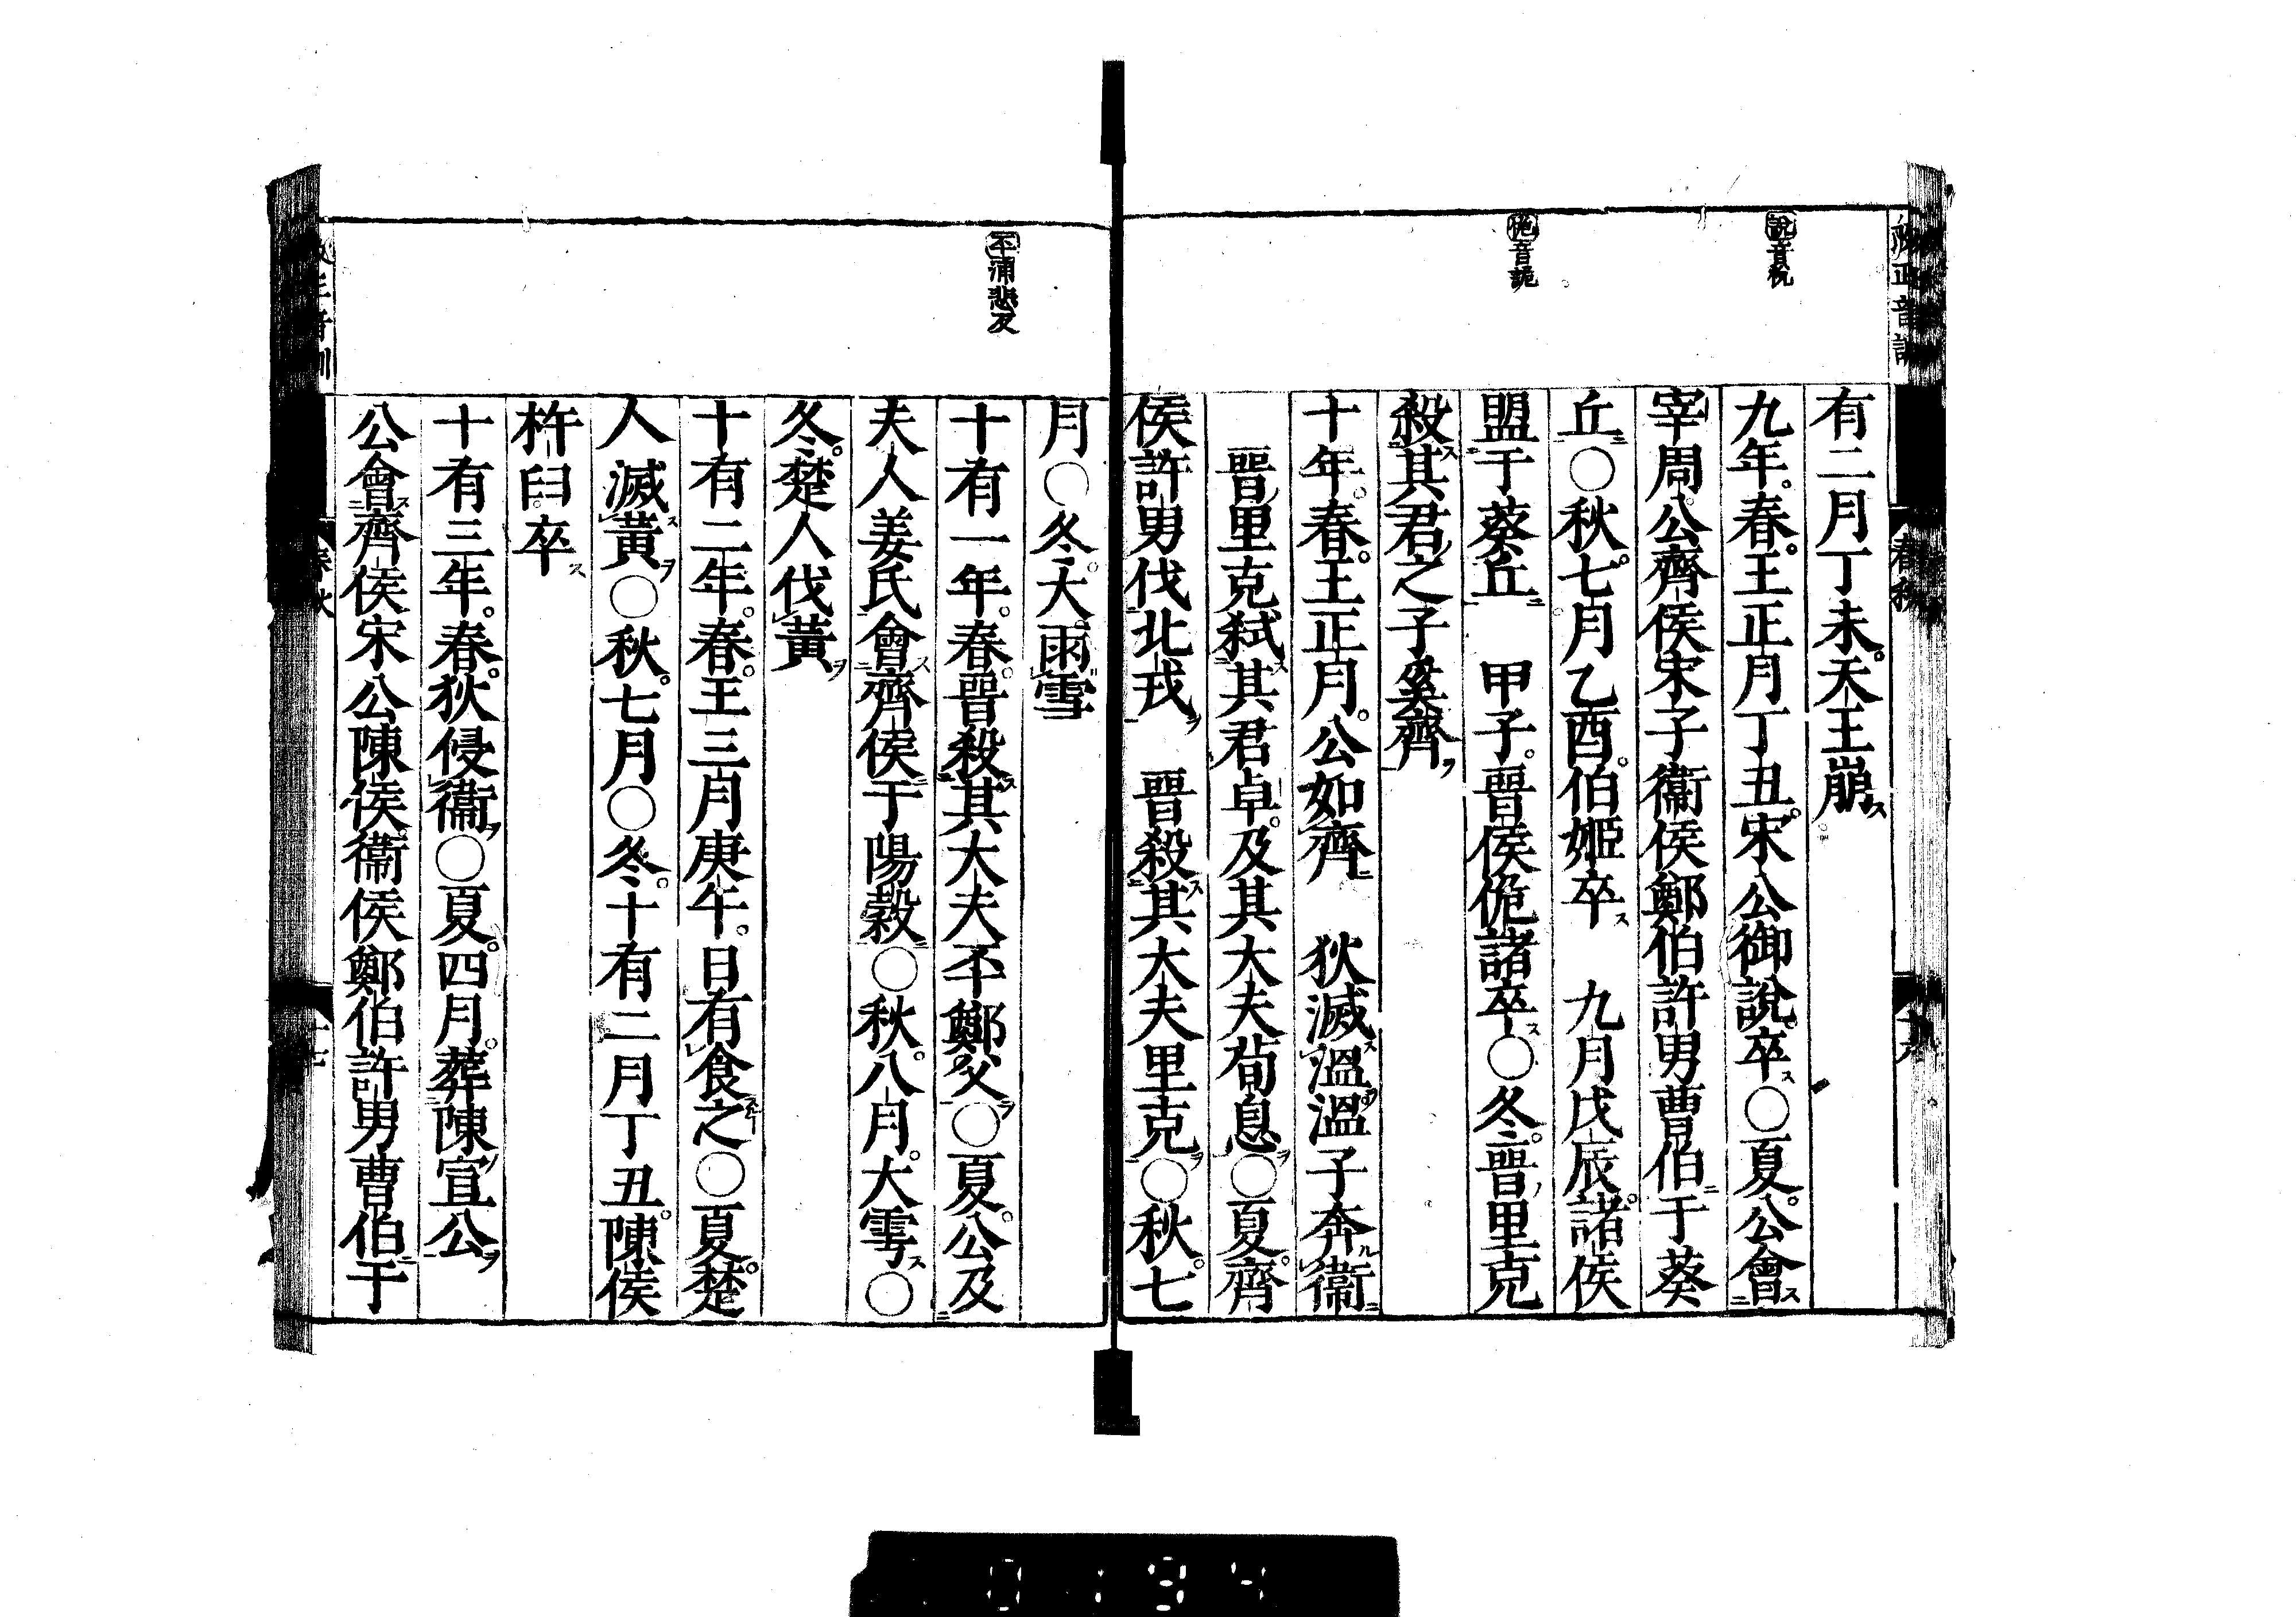 說音稅
佹音詭
有二月丁未天王崩ス
九年春王正月丁丑宋公御說卒ス○夏公會ス
宰周公齊侯宋子衞侯鄭伯許男曹伯于葵
丘○秋七月乙酉伯姬卒ス　九月戊辰諸侯
盟于葵丘　甲子晉侯佹諸卒ス○冬晉ノ里克
殺ス其君ノ之子奚齊ヲ
十年春王正月公如齊ニ　狄滅ス溫ヲ溫子奔ル衞ニ
晉ノ里克弒ス其君卓及其大夫荀息ヲ○夏齊
侯許男伐北戎ヲ　晉殺ス其大夫里克ヲ○秋七
月○冬大雨雪
丕浦悲反
十有一年春晉殺ス其大夫丕鄭父ヲ○夏公及
夫人姜氏會ス齊侯于陽穀○秋八月大雩ス○
冬楚人伐黃ヲ
十有二年春王三月庚午日有食之○夏楚
人滅ス黃ヲ○秋七月○冬十有二月丁丑陳侯
杵臼卒ス
十有三年春狄侵衞ヲ○夏四月葬陳ノ宣公ヲ
公會ス齊侯宋公陳侯衞侯鄭伯許男曹伯于
春秋
0194